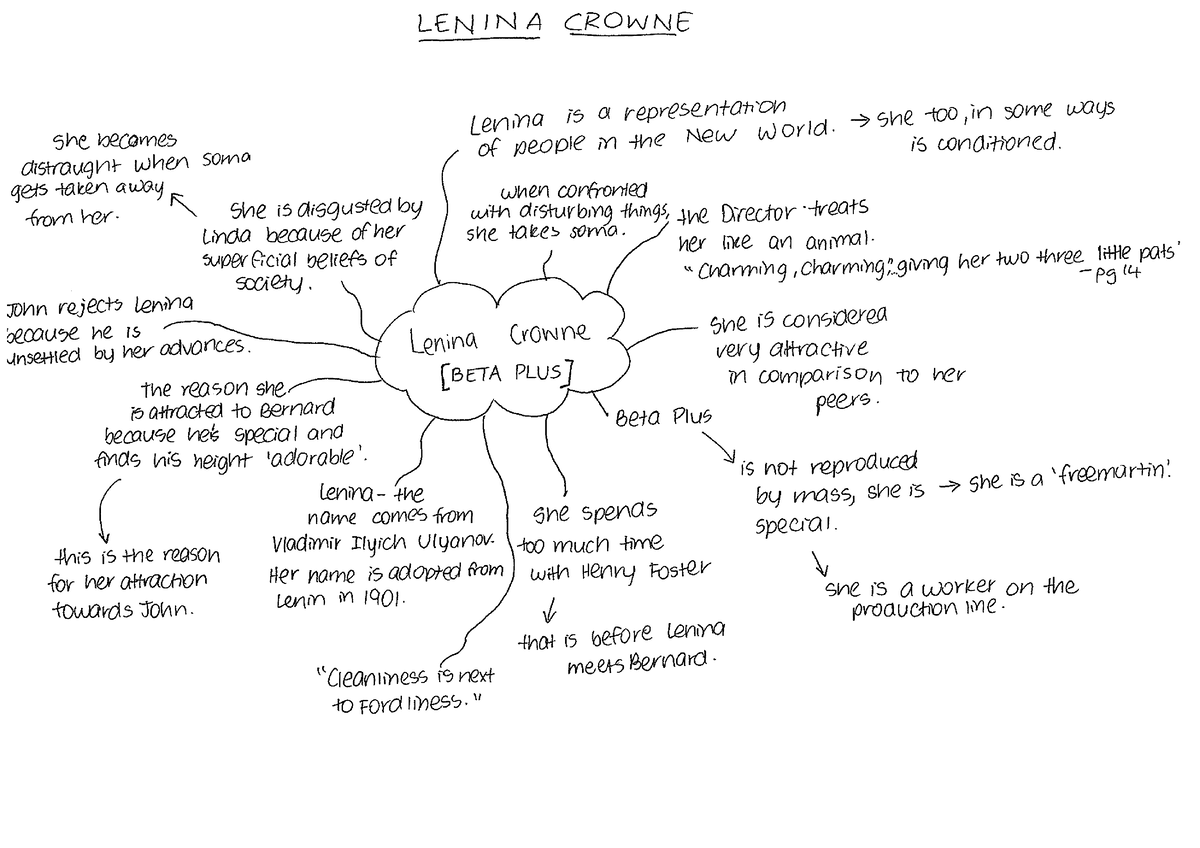 LENINA CROWNE
Lenina is a representation
of people in the New World. → she too, in some ways
is conditioned.
she becomes
distraught when soma
gets taken away
from her.
she is disgusted by
Linda because of her
superficial beliefs of
society.
when confronted
with disturbing things,
she takes soma.
the Director treats
her like an animal.
"Charming, Charming," giving her two three little pats'
- pg 14
John rejects Lenina
because he is
unsettled by her advances.
Lenina Crowne
[BETA PLUS]
she is considered
very attractive
in comparison to her
peers.
the reason she
is attracted to Bernard
because he's special and
finds his height 'adorable'.
this is the reason
for her attraction
towards John.
Beta Plus
is not reproduced
by mass, she is → she is a 'freemartin'.
special.
she is a worker on the
production line.
Lenina - the
name comes from
Vladimir Ilyich Ulyanov.
Her name is adopted from
Lenin in 1901.
she spends
too much time
with Henry Foster
that is before Lenina
meets Bernard.
"Cleanliness is next
to Fordliness."